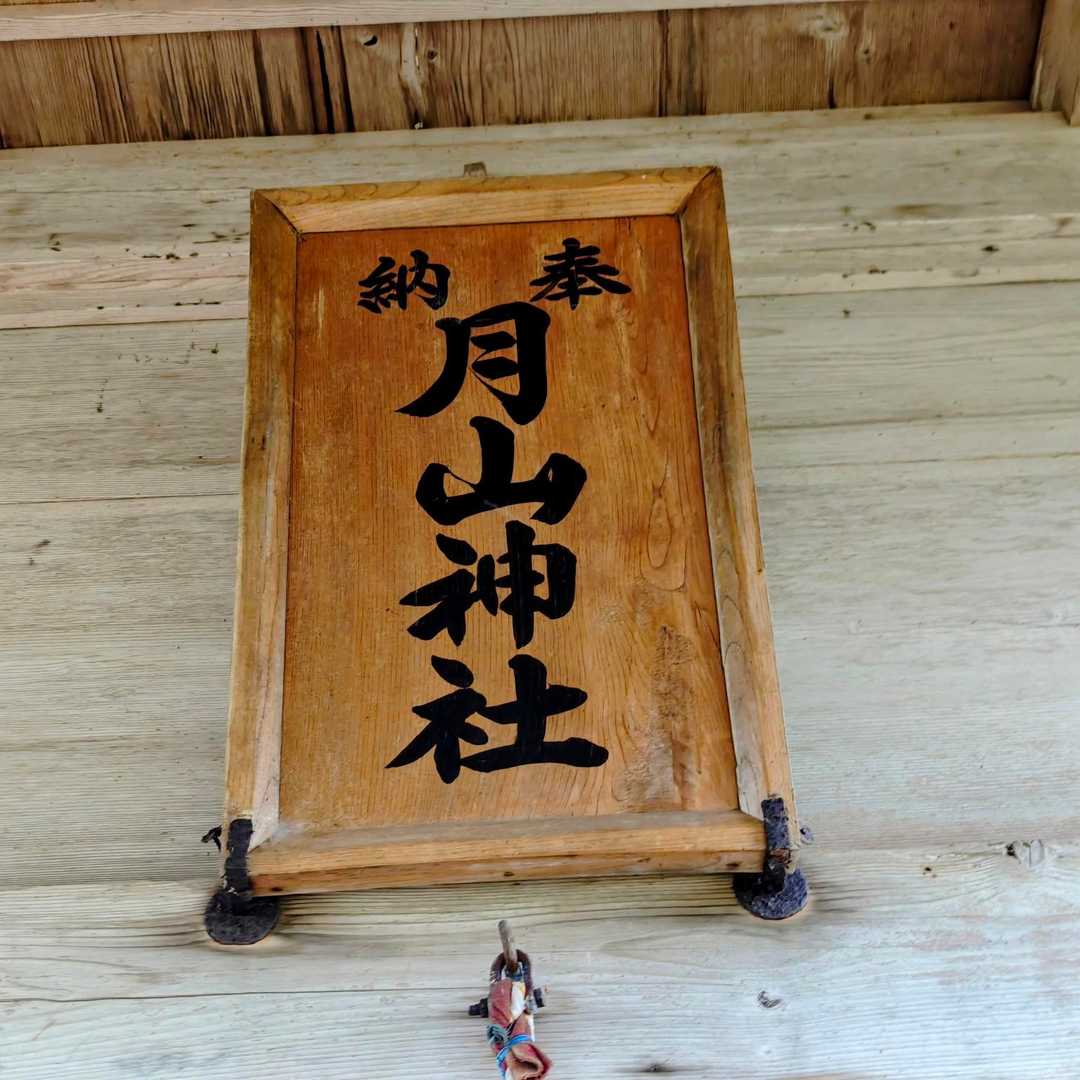 奉納
月山神社